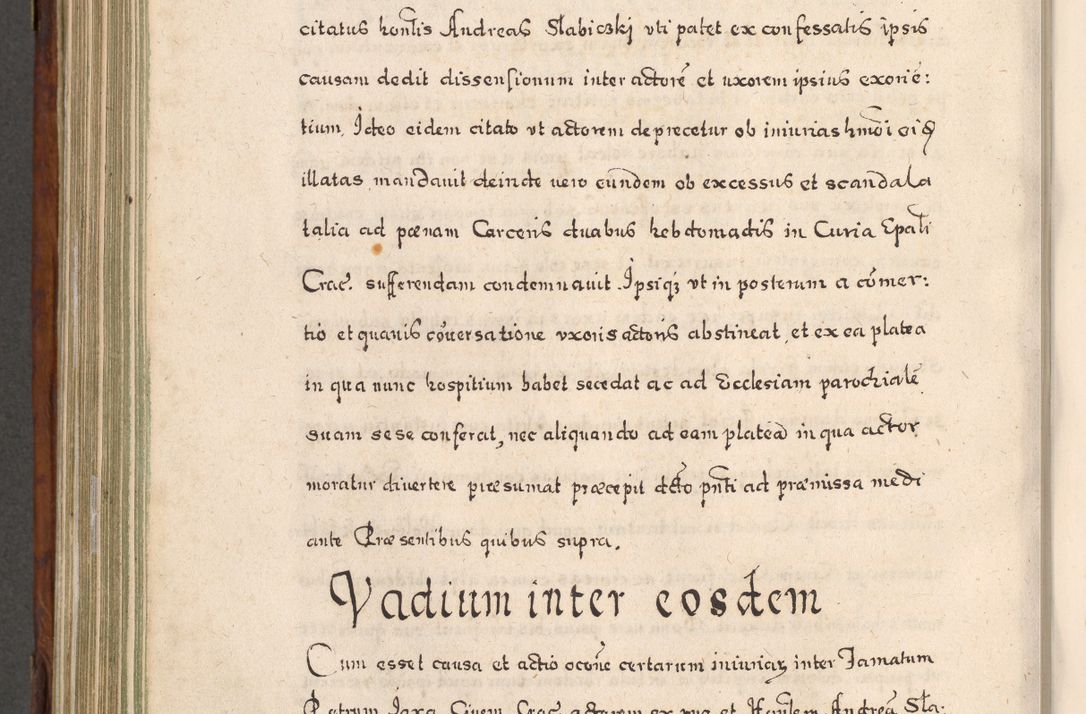 citatus honlis Andreas Slabiczkj vti patet ex confessatis ipsis
causam dedit dissensionum inter actorē et uxorem ipsius exorie:
tium, Ideo eidem citato vt actorem deprecetur ob iniurias hmōi ei
illatas mandauit deinde vero eundem ob excessus et scandala
talia ad pœnam Carceris duabus hebdomadis in Curia Epāli
Crac. sufferendam condemnauit. Ipsiq₃ vt in posterum a cōmer:
tio et quauis cōuersatione vxoris actoris abstineat, et ex ea platea
in qua nunc hospitium habet secedat ac ad Ecclesiam parochialē
suam sese conferat, nec aliquando ad eam plateā in qua actor
moratur diuertere præsumat præcepit dcto pnti ad præmissa medi
ante Præsentibus quibus supra.
Vadium inter eosdem
Cum esset causa et actio occōne certarum iniuriaꝝ inter Famatum
Petrum Jaxa Ciuem Crac actorem ex vna et Honlem Andreā Sla: